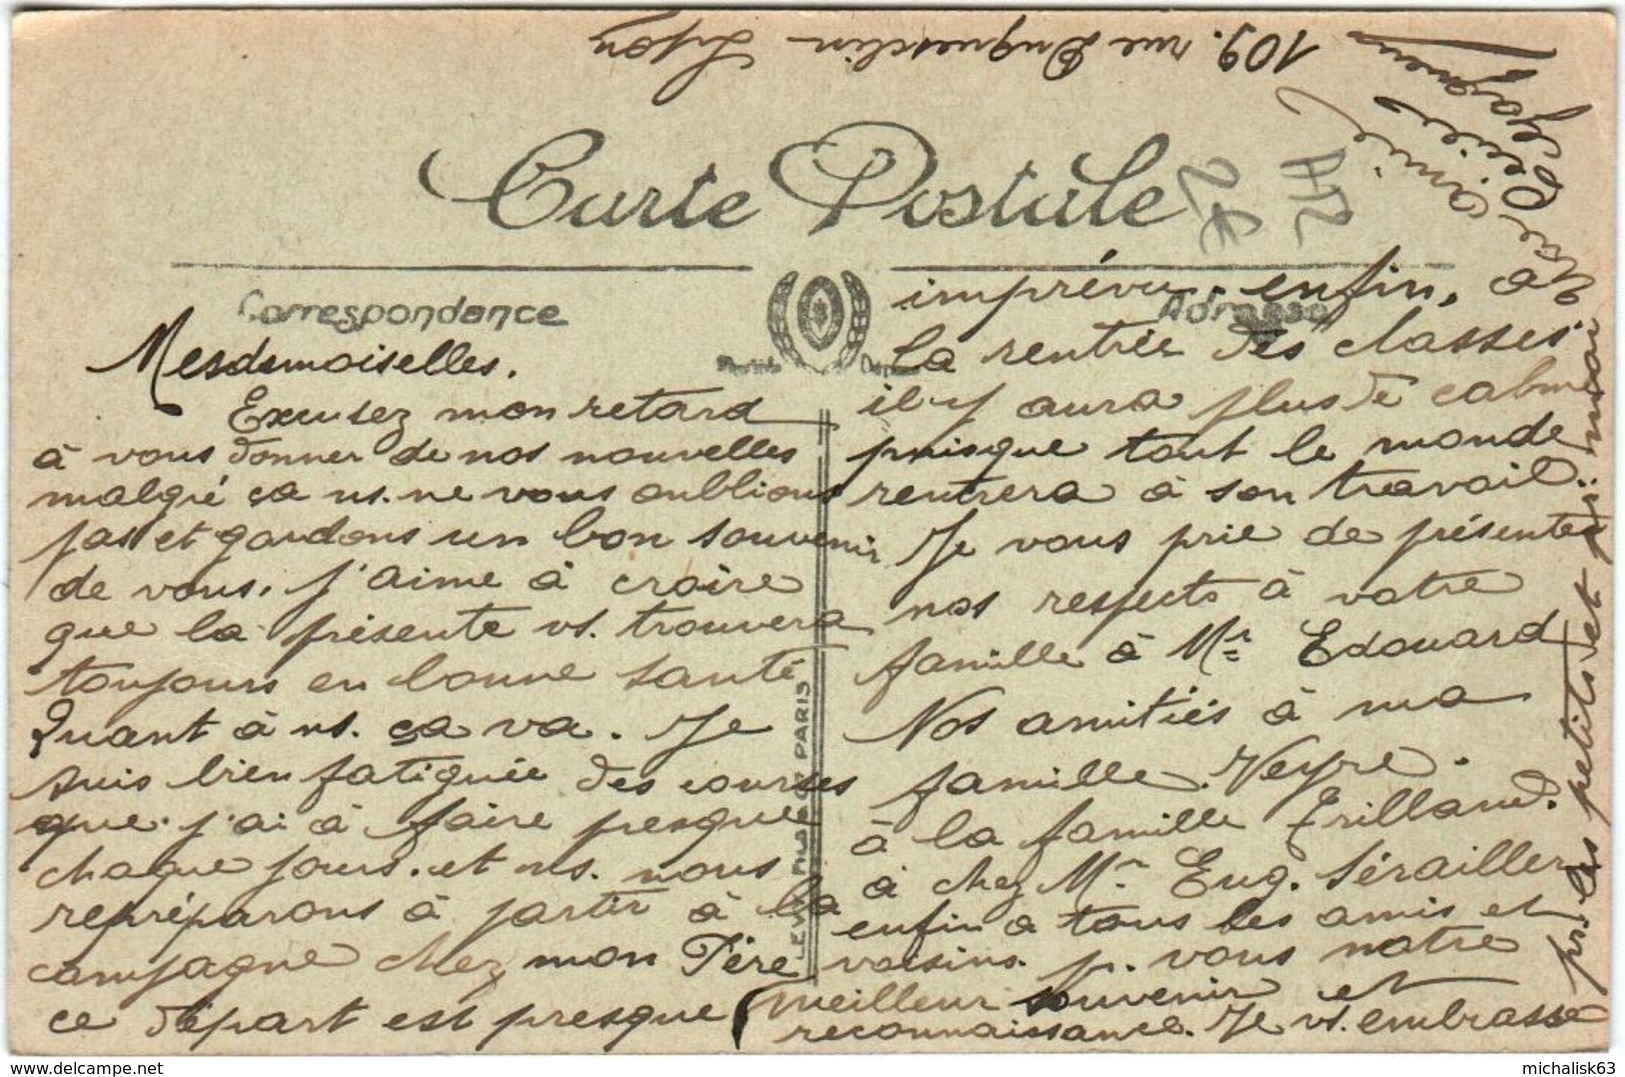 Carte Postale
Correspondance
Adresse
Mesdemoiselles.
Excusez mon retard
à vous donner de nos nouvelles
malgré ça ns. ne vous oublions
pas et gardons un bon souvenir
de vous. j'aime à croire
que la présente vs. trouvera
toujours en bonne santé
Quant à ns. ça va. Je
suis bien fatiguée des courses
que j'ai à faire presque
chaque jours. et ns. nous
repréparons à partir à la
campagne chez mon Père
ce départ est presque
imprévu. enfin, à
la rentrée des classes
il y aura plus de calme
puisque tout le monde
rentrera à son travail.
Je vous prie de présenter
nos respects à votre
famille à Mr Edouard
Nos amitiés à ma
famille Veyre.
à la famille Trilland.
à chez Mr Eug. Sérailler
enfin a tous les amis et
voisins. p. vous notre
meilleur souvenir et
reconnaissance. Je vs. embrasse
pr. les petits et pr. moi
Votre amie
109. rue Duguesclin Lyon
LEVY PARIS
michalisk63